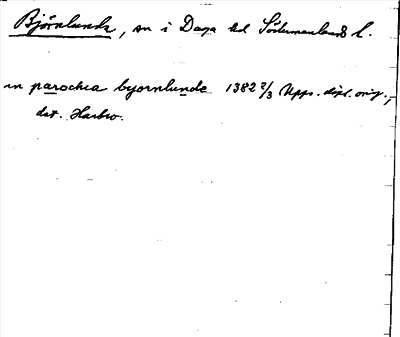 Björnlunda, sn i Daga hd Södermanlands l.
in parochia byornlunde 1382 2/3 Upps. dipl. orig.,
dat. Harbro.